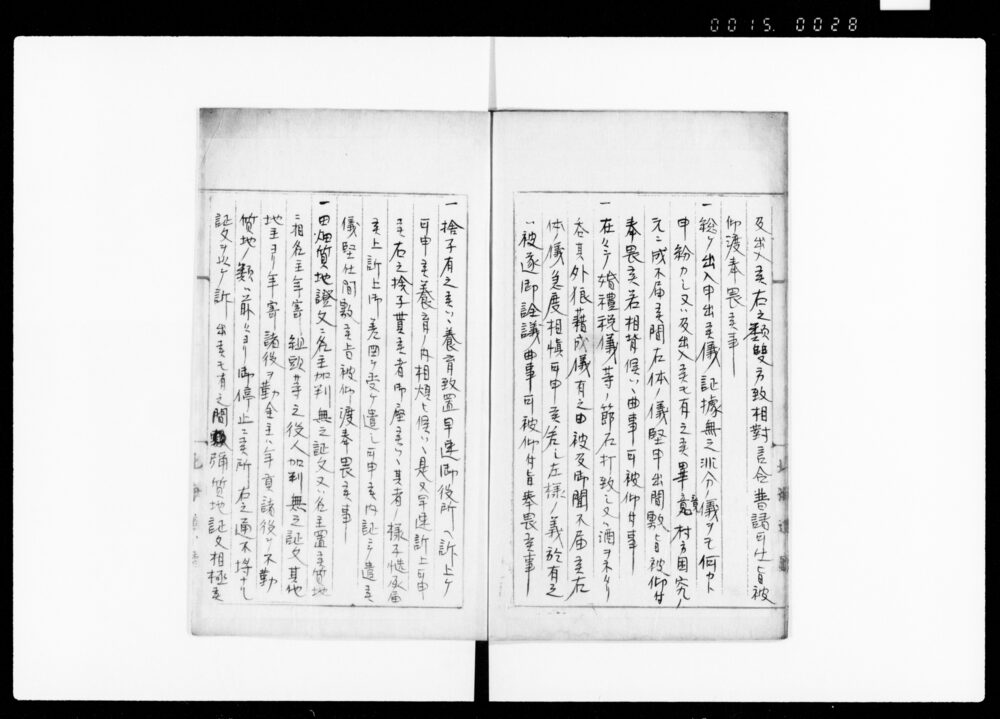 0015. 0028
及出入候右之類雙方致相対言合普請可仕旨被
仰渡奉畏候事
一 総テ出入申出候儀証拠無之非分ノ儀ヲモ何カト
申紛カシ又ハ及出入候モ有之候畢竟村方困窮ノ
元ニ成不届候間右体ノ儀堅申出間敷旨被仰付
奉畏候若相背候ハヽ曲事ニ可被仰付事
一 在々ニテ婚禮祝儀等ノ節石打致シ又ハ酒ヲネタリ
其外狼藉成儀有之由被及御聞不届候右
体ノ儀急度相慎可申候若シ左様ノ義於有之
ハ被遂御詮議曲事可被仰付旨奉畏候事
一 捨子有之候ハヽ養育致置早速御役所ヘ訴上ケ
可申候養育ノ内相煩ヒ候ハヽ是又早速訴上可申
候右之捨子貰候者御座候ハヽ其者ノ様子慥承届
候上訴上御差図ヲ受ケ遣シ可申候内証ニテ遣候
儀堅仕間敷候旨被仰渡奉畏候事
一 田畑質地證文ニ名主加判無之証文又ハ名主置候質地
ニ相名主年寄組頭等之役人加判無之証文其他
地主ヨリ年寄諸役ヲ勤金主ハ年貢諸役ヲ不勤
質地ノ類ハ前々ヨリ御停止ニ候所右之通不埒ナル
証文ヲ以テ訴出候モ有之間 弥質地証文相極候